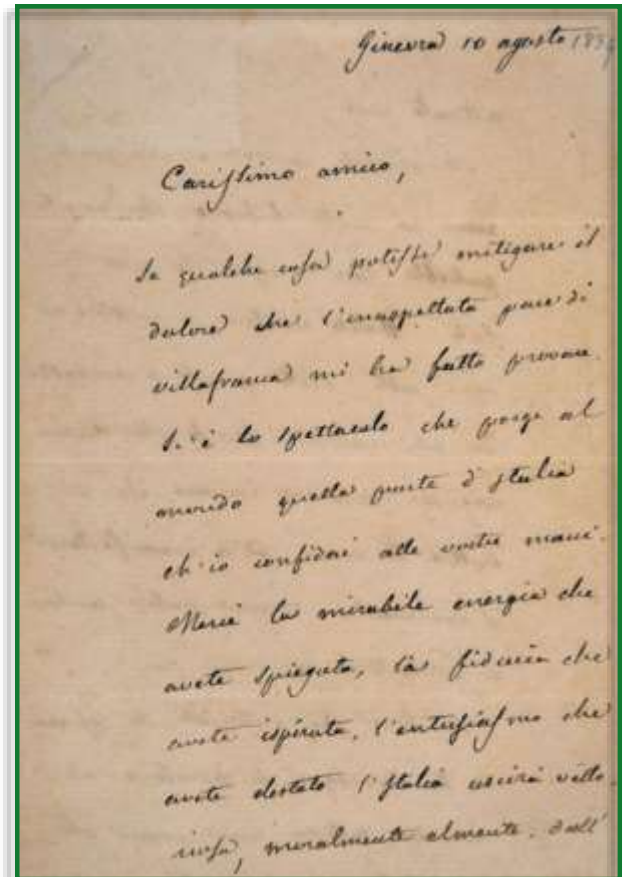 Ginevra 10 agosto 1859
Carissimo amico,
Se qualche cosa potesse mitigare il
dolore che l'inaspettata pace di
villafranca mi ha fatto provare.
Si è lo spettacolo che porge al
mondo quella parte d'Italia
ch'io confidai alle vostre mani.
Mercè la mirabile energia che
avete spiegata, la fiducia che
avete ispirata, l'entusiasmo che
avete destato l'Italia uscirà vitto
riosa, moralmente almente, dall'